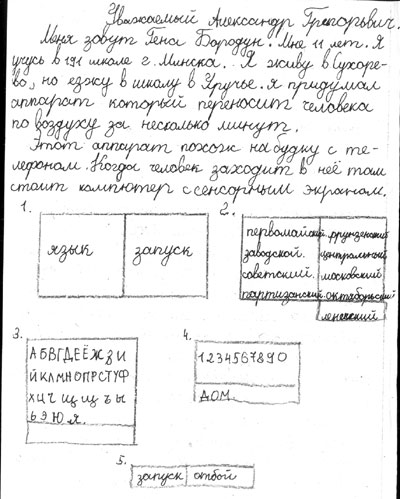 Уважаемый Александр Григорьевич.
Меня зовут Гена Бородун. Мне 11 лет. Я
учусь в 191 школе г. Минска. Я живу в Сухоре-
во, но езжу в школу в Уручье. Я придумал
аппарат который переносит человека
по воздуху за несколько минут.
Этот аппарат похож на будку с те-
лефоном. Когда человек заходит в неё там
стоит компютер с сенсорным экраном.
1.
язык
запуск
2.
первомайский.
фрунзенский
заводской.
центральный
советский.
московский
партизанский.
октябрьский
ленинский
3.
АБВГДЕЁЖЗИ
ЙКЛМНОПРСТУФ
ХЦЧ ЩЩЪЫ
ЬЭЮЯ.
4.
1234567890
ДОМ.
5.
запуск
отбой